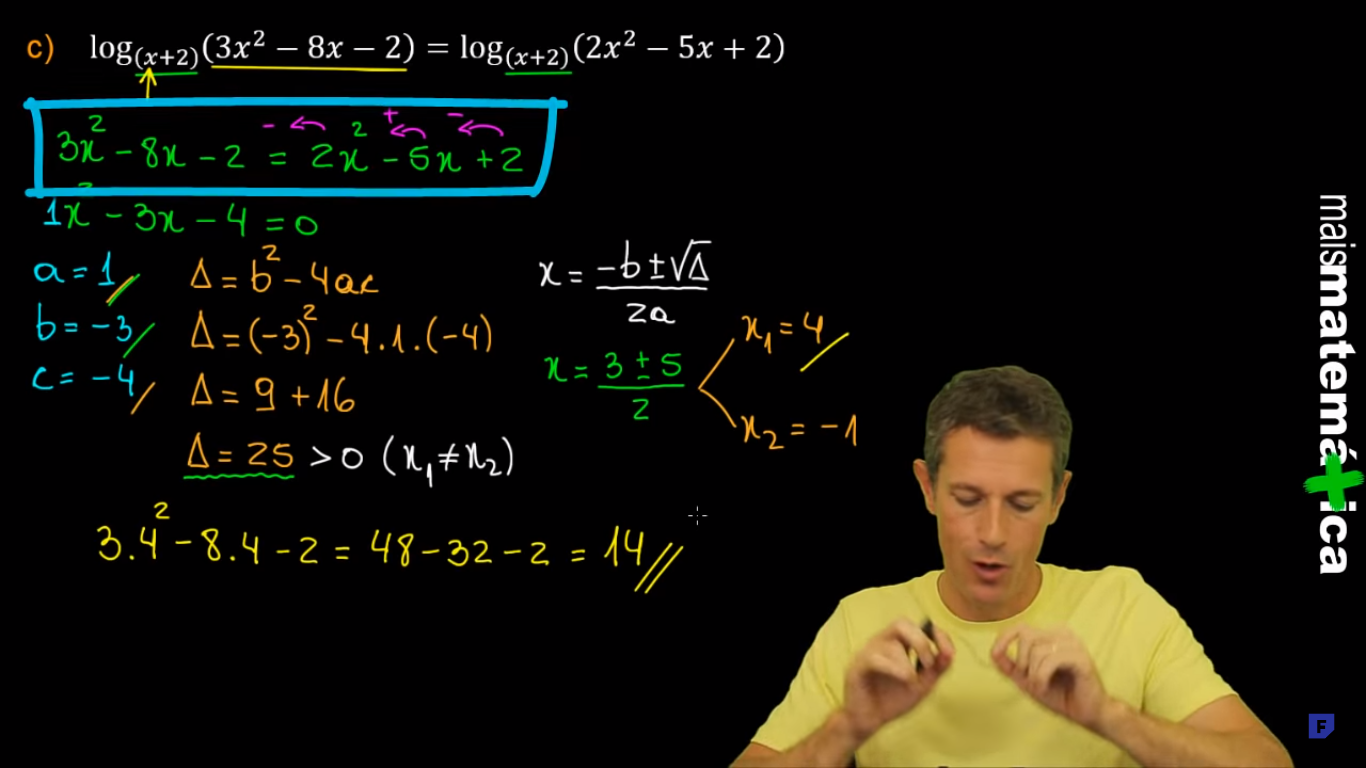 c) log₍ₓ₊₂₎(3x² − 8x − 2) = log₍ₓ₊₂₎(2x² − 5x + 2)
3x² − 8x − 2 = 2x² − 5x + 2
− + −
1x² − 3x − 4 = 0
a = 1
b = −3
c = −4
Δ = b² − 4ac
Δ = (−3)² − 4.1.(−4)
Δ = 9 + 16
Δ = 25 > 0 (x₁ ≠ x₂)
x = (−b ± √Δ)/2a
x = (3 ± 5)/2
x₁ = 4
x₂ = −1
3.4² − 8.4 − 2 = 48 − 32 − 2 = 14
maismatemá+ica
F